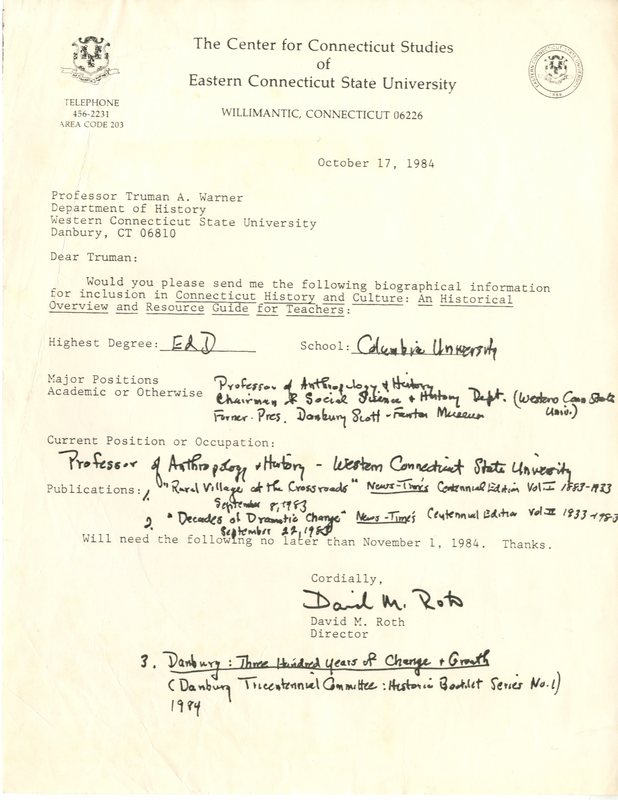 The Center for Connecticut Studies
of
Eastern Connecticut State University
WILLIMANTIC, CONNECTICUT 06226
TELEPHONE
456-2231
AREA CODE 203
EASTERN CONNECTICUT STATE UNIVERSITY
October 17, 1984
Professor Truman A. Warner
Department of History
Western Connecticut State University
Danbury, CT 06810
Dear Truman:
Would you please send me the following biographical information
for inclusion in Connecticut History and Culture: An Historical
Overview and Resource Guide for Teachers:
Highest Degree: EdD School: Columbia University
Major Positions
Academic or Otherwise
Professor of Anthropology & History
Chairman of Social Science & History Dept. (Western Conn State
Univ.)
Former Pres. Danbury Scott-Fanton Museum
Current Position or Occupation:
Professor of Anthropology & History - Western Connecticut State University
Publications: 1. "Rural Village at the Crossroads" News-Times Centennial Edition Vol I 1883-1933
September 8, 1983
2. "Decades of Dramatic Change" News-Times Centennial Edition Vol II 1933-1983
September 22, 1983
Will need the following no later than November 1, 1984. Thanks.
Cordially,
David M. Roth
David M. Roth
Director
3. Danbury: Three Hundred Years of Change & Growth
(Danbury Tricentennial Committee: Historic Booklet Series No. 1)
1984